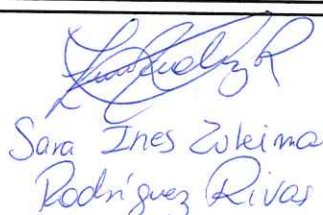 Sara Ines Zuleima
Rodríguez Rivas